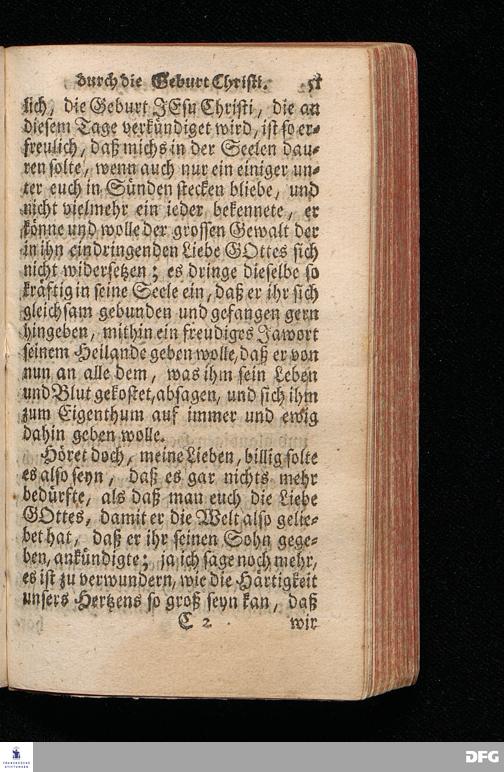 durch die Geburt Christi. 51
lich, die Geburt JEsu Christi, die an
diesem Tage verkündiget wird, ist so er-
freulich, daß michs in der Seelen dau-
ren solte, wenn auch nur ein einiger un-
ter euch in Sünden stecken bliebe, und
nicht vielmehr ein ieder bekennete, er
könne und wolle der grossen Gewalt der
in ihn eindringenden Liebe GOttes sich
nicht widersetzen; es dringe dieselbe so
kräftig in seine Seele ein, daß er ihr sich
gleichsam gebunden und gefangen gern
hingeben, mithin ein freudiges Jawort
seinem Heilande geben wolle, daß er von
nun an alle dem, was ihm sein Leben
und Blut gekostet, absagen, und sich ihm
zum Eigenthum auf immer und ewig
dahin geben wolle.
Höret doch, meine Lieben, billig solte
es also seyn, daß es gar nichts mehr
bedürfte, als daß man euch die Liebe
GOttes, damit er die Welt also gelie-
bet hat, daß er ihr seinen Sohn gege-
ben, ankündigte; ja ich sage noch mehr,
es ist zu verwundern, wie die Härtigkeit
unsers Hertzens so groß seyn kan, daß
C 2 wir
FRANCKESCHE STIFTUNGEN
DFG